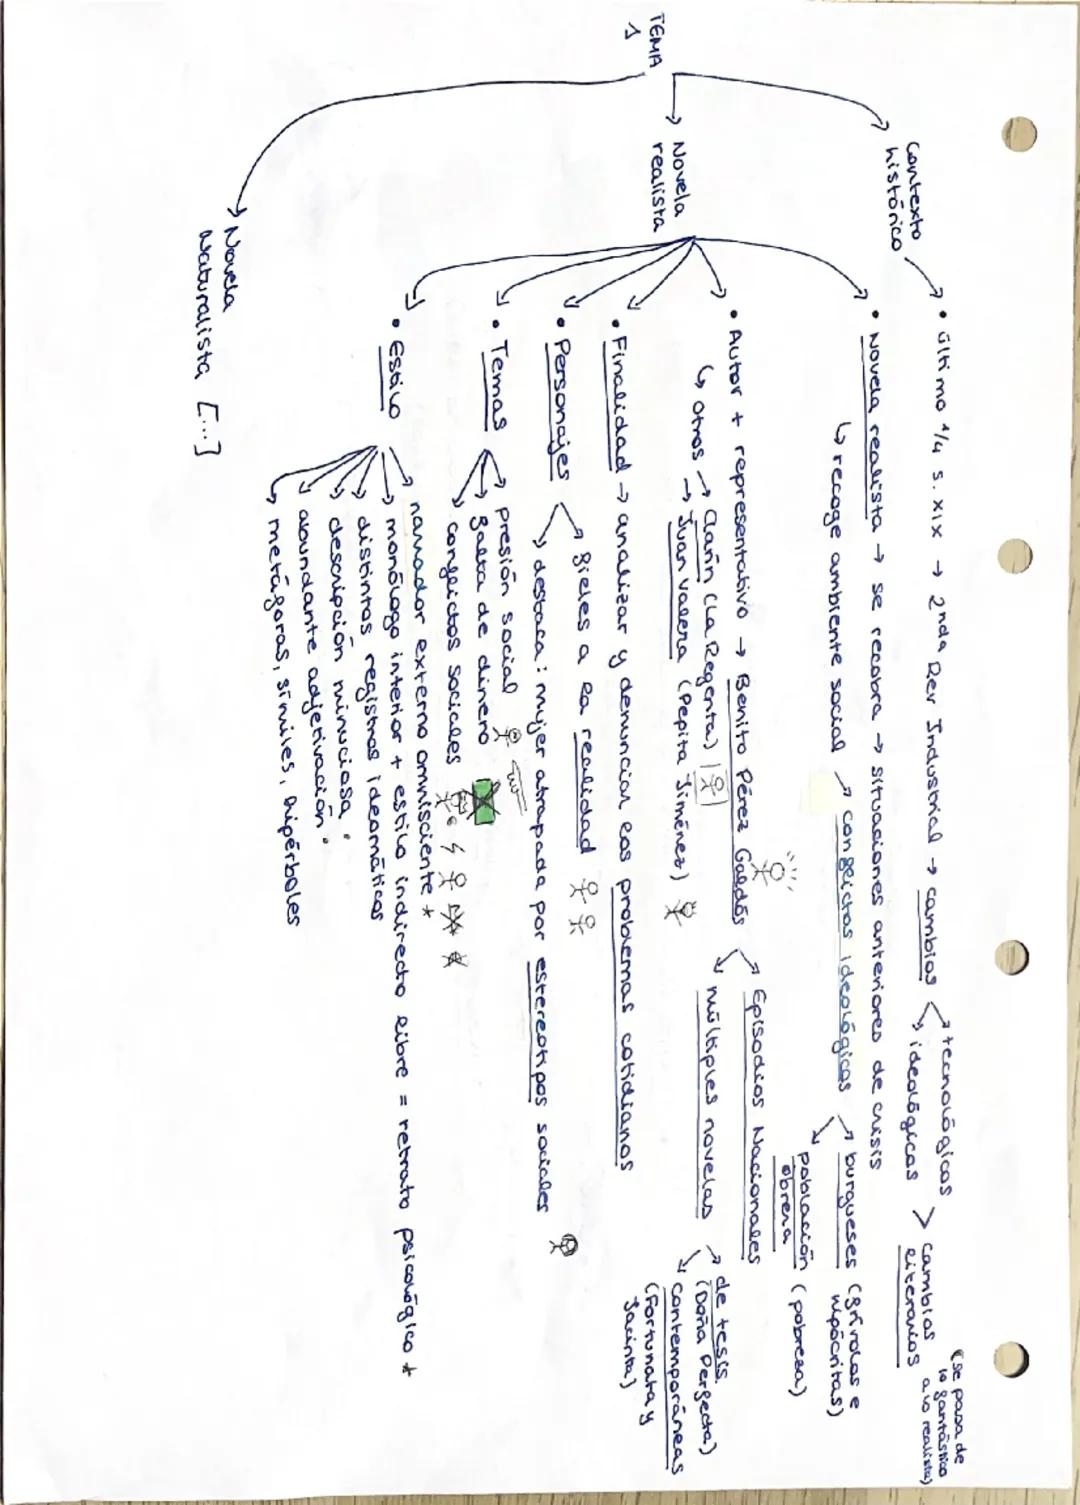 TEMA
1
Contexto
histórico
• último 1/4 s. XIX → 2nda Rev Industrial → cambios
tecnológicos
ideológicos
> cambios
literarios
(se pasa de
lo fantástico
a lo realista)
Novela
realista
• Novela realista → se recobra → situaciones anteriores de crisis
↳ recoge ambiente social → conflictos ideológicos
burgueses (frívolos e
hipócritas)
población (pobreza)
obrera
• Autor + representativo → Benito Pérez Galdós
Episodios Nacionales
múltiples novelas
de tesis
(Doña Perfecta)
contemporáneas
(Fortunata y
Jacinta)
↳ otros → Clarín (La Regenta)
→ Juan Valera (Pepita Jiménez)
• Finalidad → analizar y denunciar los problemas cotidianos
• Personajes
fieles a la realidad
destaca: mujer atrapada por estereotipos sociales
• Temas
presión social
falta de dinero
conflictos sociales
• Estilo
narrador externo omnisciente +
monólogo interior + estilo indirecto libre = retrato psicológico +
distintos registros idiomáticos
descripción minuciosa
abundante adjetivación
metáforas, símiles, hipérboles
Novela
Naturalista [...]